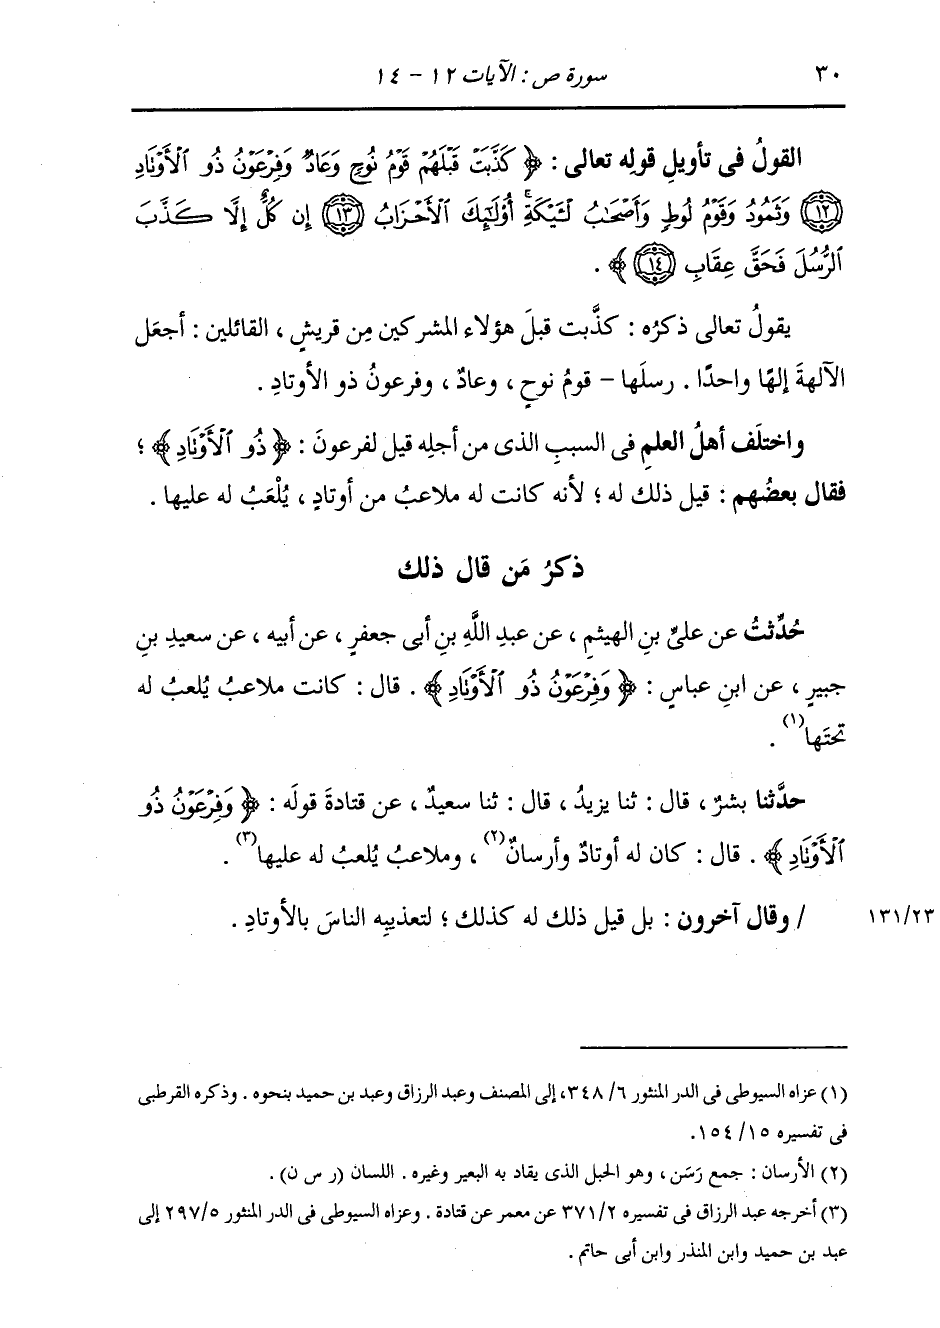 ٣٠
سورة ص : الآيات ١٢ - ١٤
القولُ فى تأويلِ قولِه تعالى : ﴿ كَذَّبَتْ قَبْلَهُمْ قَوْمُ نُوحٍ وَعَادٌ وَفِرْعَوْنُ ذُو ٱلْأَوْنَادِ
﴿١٢﴾ وَثَمُودُ وَقَوْمُ لُوطٍ وَأَصْحَٰبُ لْـَٔيْكَةِ ۚ أُو۟لَٰٓئِكَ ٱلْأَحْزَابُ ﴿١٣﴾ إِن كُلٌّ إِلَّا كَذَّبَ
ٱلرُّسُلَ فَحَقَّ عِقَابِ ﴿١٤﴾ ﴾ .
يقولُ تعالى ذكرُه : كذَّبت قبلَ هؤلاء المشركين مِن قريشٍ ، القائلين : أجعَل
الآلهةَ إلهًا واحدًا . رسلَها - قومُ نوحٍ ، وعادٌ ، وفرعونُ ذو الأوتادِ .
واختلَف أهلُ العلمِ فى السببِ الذى من أجلِه قيل لفرعونَ : ﴿ ذُو ٱلْأَوْنَادِ ﴾ ؛
فقال بعضُهم : قيل ذلك له ؛ لأنه كانت له ملاعبُ من أوتادٍ ، يُلْعَبُ له عليها .
ذكرُ مَن قال ذلك
حُدِّثتُ عن علىِّ بنِ الهيثمِ ، عن عبدِ اللَّهِ بنِ أبى جعفرٍ ، عن أبيه ، عن سعيدِ بنِ
جبيرٍ ، عن ابنِ عباسٍ : ﴿ وَفِرْعَوْنُ ذُو ٱلْأَوْنَادِ ﴾ . قال : كانت ملاعبُ يُلعبُ له
تحتَها(١) .
حدَّثنا بشرٌ ، قال : ثنا يزيدُ ، قال : ثنا سعيدٌ ، عن قتادةَ قولَه : ﴿ وَفِرْعَوْنُ ذُو
ٱلْأَوْنَادِ ﴾ . قال : كان له أوتادٌ وأرسانٌ(٢) ، وملاعبُ يُلعبُ له عليها(٣) .
/ وقال آخرون : بل قيل ذلك له كذلك ؛ لتعذيبِه الناسَ بالأوتادِ .
١٣١/٢٣
(١) عزاه السيوطى فى الدر المنثور ٦/ ٣٤٨، إلى المصنف وعبد الرزاق وعبد بن حميد بنحوه . وذكره القرطبى
فى تفسيره ١٥/ ١٥٤.
(٢) الأرسان : جمع رَسَن ، وهو الحبل الذى يقاد به البعير وغيره . اللسان (ر س ن) .
(٣) أخرجه عبد الرزاق فى تفسيره ٣٧١/٢ عن معمر عن قتادة . وعزاه السيوطى فى الدر المنثور ٢٩٧/٥ إلى
عبد بن حميد وابن المنذر وابن أبى حاتم .